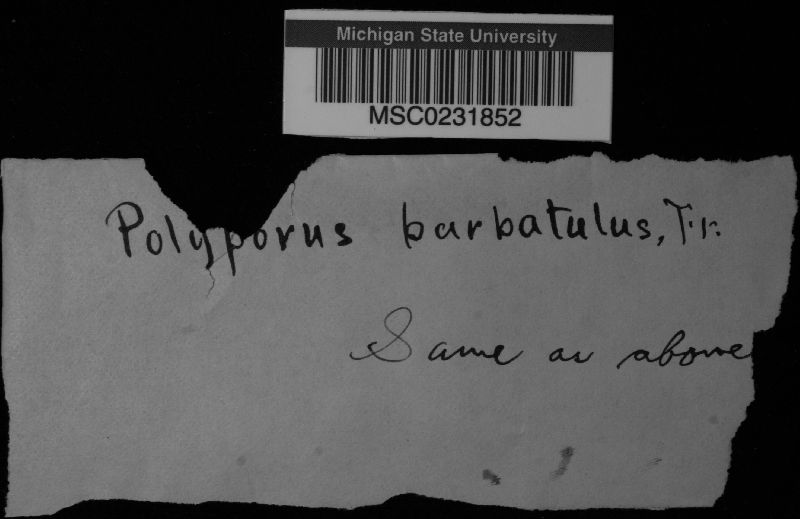 Michigan State University
MSC0231852
Polyporus barbatulus, Fr.
Same as above